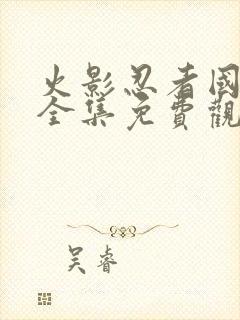 火影忍者國
全集免費觀
吴睿